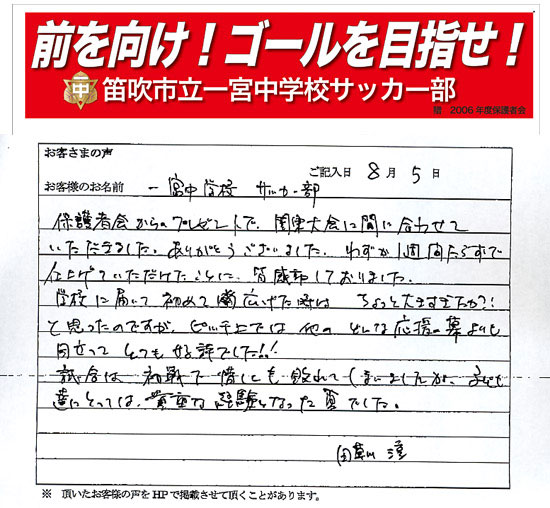 前を向け！ゴールを目指せ！
一中
笛吹市立一宮中学校サッカー部
贈 2006年度保護者会
お客さまの声
ご記入日 8月5日
お客様のお名前 一宮中学校 サッカー部
保護者会からのプレゼントで、関東大会に間に合わせて
いただきました。ありがとうございました。わずか1週間たらずで
仕上げていただけたことに、皆感動しておりました。
学校に届いて初めて広げた時は ちょっと大きすぎたか？！
と思ったのですが、ピッチ上では他のどんな応援の幕よりも
目立って とても好評でした！！
試合は 初戦で惜しくも敗れてしまいましたが、子ども
達にとっては、貴重な経験となった夏でした。
※ 頂いたお客様の声をHPで掲載させて頂くことがあります。